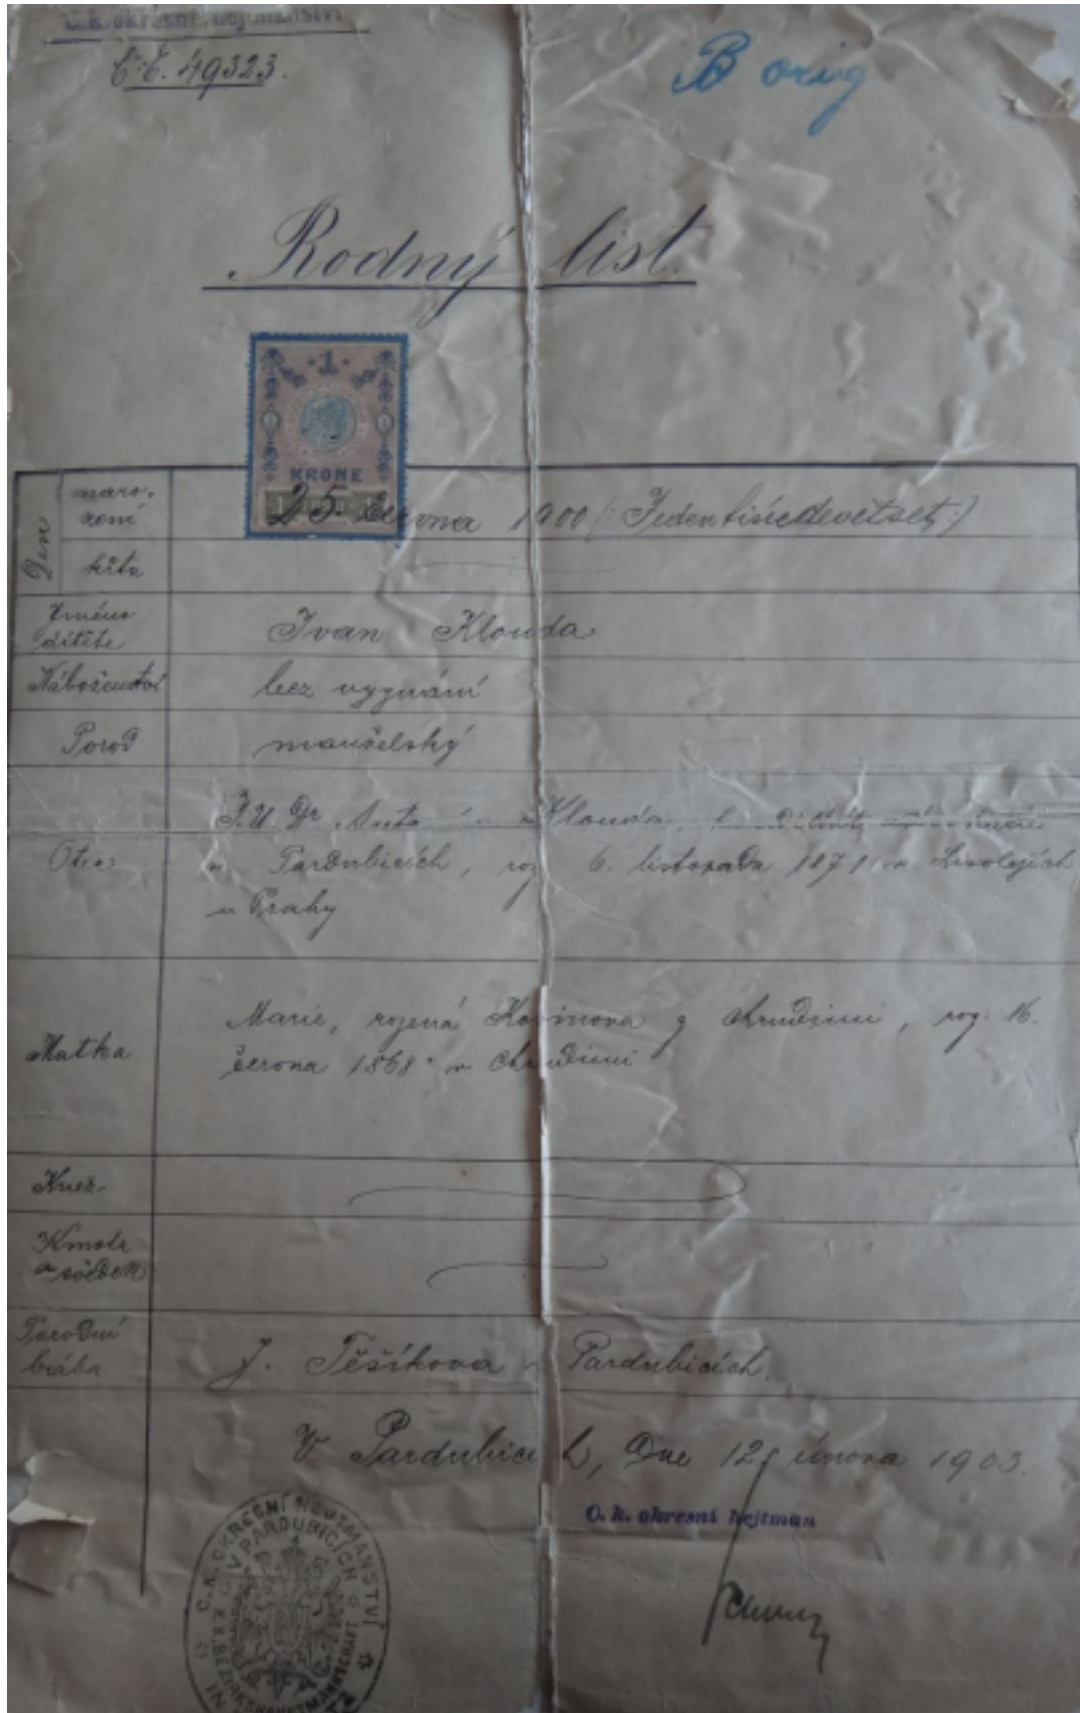 C.k. okresní hejtmanství
Č.č. 49323.
B orig
Rodný list.
1
KRONE
Den
naro-
zení
25. června 1900 (: Jedentisícdevětset :)
křtu
Jméno
dítěte
Ivan Klouda
Náboženství
bez vyznání
Porod
manželský
Otec
J.U.Dr. Klouda,
v Pardubicích, 6. listopadu 1871 v
u Prahy
Matka
Marie, rozená z Chrudimi, roz. 16.
června 1868 v Chrudimi
Kněz
Kmotr
a svědek
Porodní
bába
J. Těšíkova Pardubicích.
V Pardubicích, Dne 12/ února 1903.
C. k. okresní hejtman
C. K. OKRESNÍ HEJTMANSTVÍ
V PARDUBICÍCH
K.K. BEZIRKSHAUPTMANNSCHAFT
IN